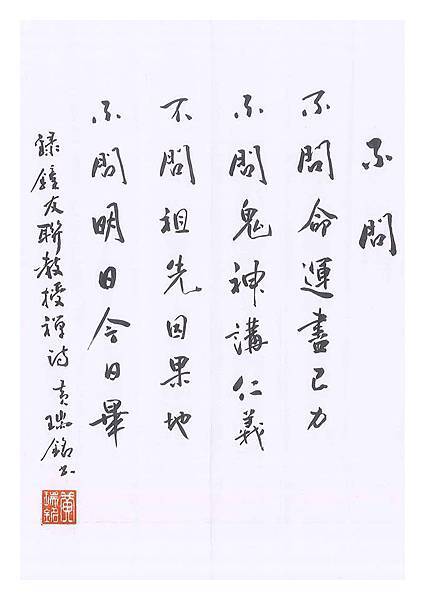 不問
不問命運盡己力
不問鬼神講仁義
不問祖先因果地
不問明日今日畢
錄鐘友聯教授禪詩 黃瑞銘书
黃瑞銘